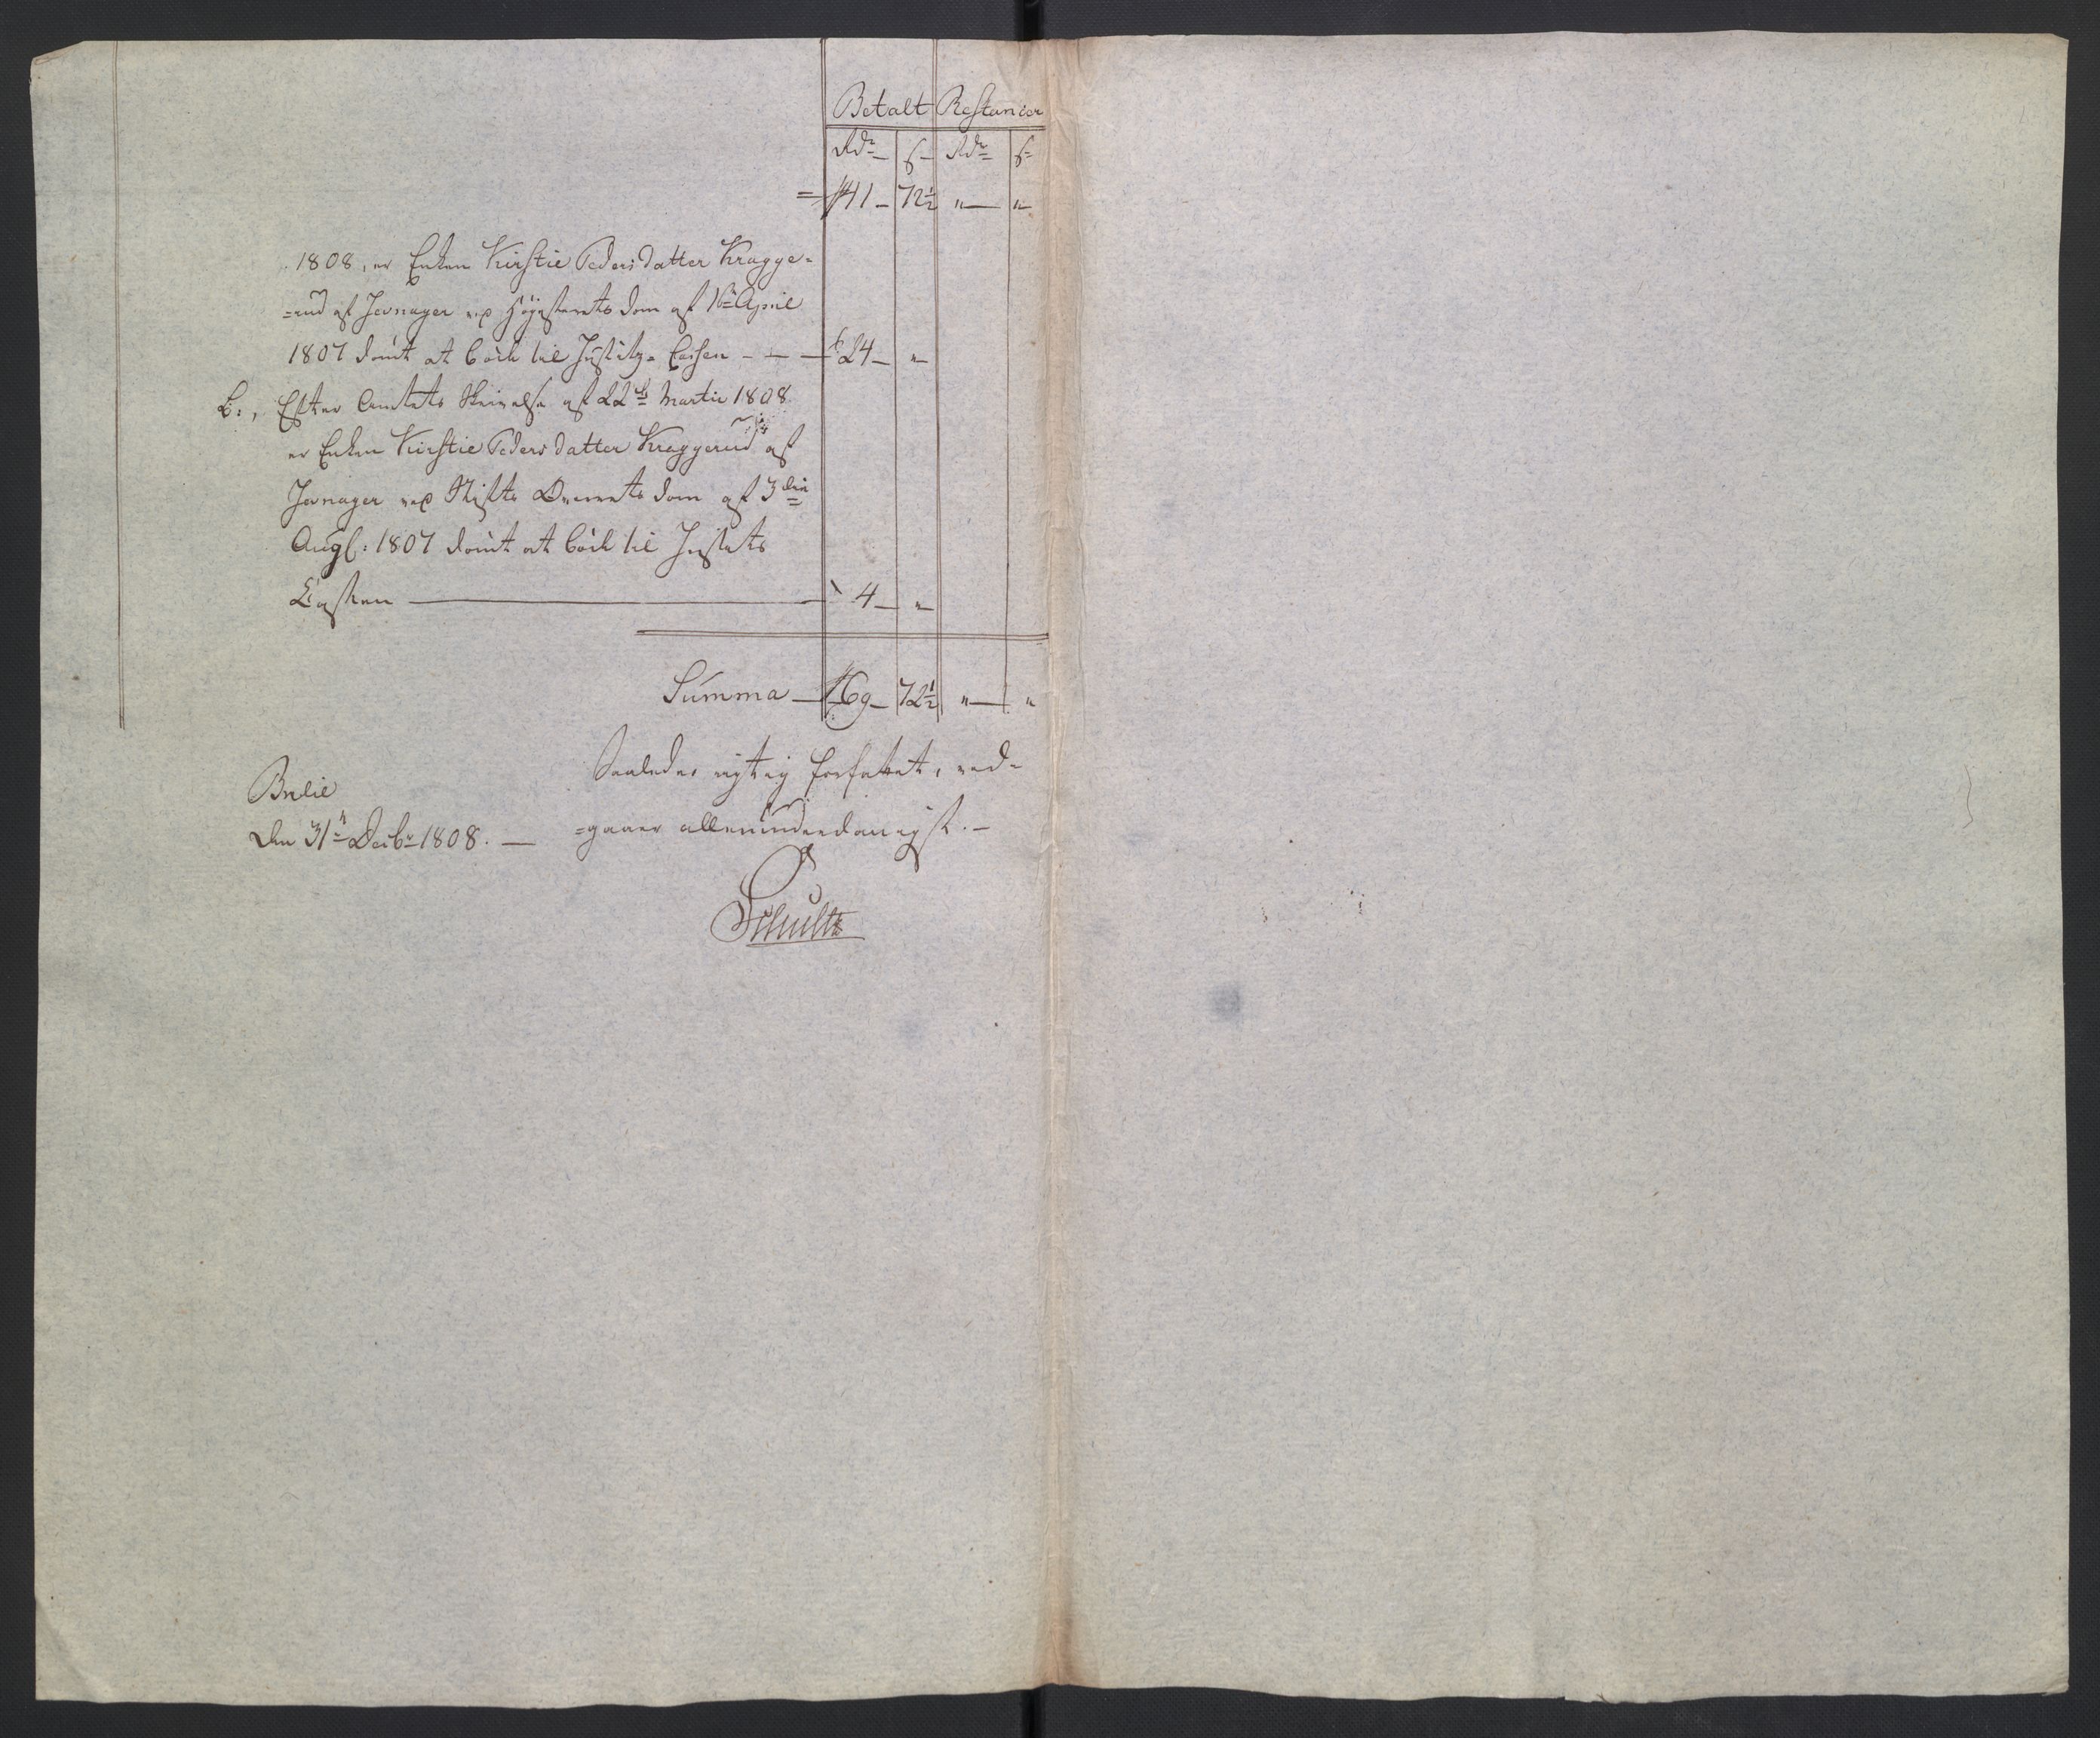 Betalt Restancer
Rdr s Rdr s
= 141 - 72½ " "
1808, er Enken Kirstie Pedersdatter Kragge-
=rud af Jevnager ved Høyesterets Dom af 16de April
1807 dömt at böde til Justitz-Cassen - - - 24 - "
b:, Efter Amtets Skrivelse af 22de Martii 1808
er Enken Kirstie Pedersdatter Kraggerud af
Jevnager ved Stifts Overrets Dom af 3die
Augl: 1807 dömt at böde til Justits
Cassen 4 - "
Summa - 169 - 72½ " "
Saaledes rigtig forfattet, ved-
=gaaer allerunderdanigst. -
Brelie
den 31te Decbr 1808. -
Schultz